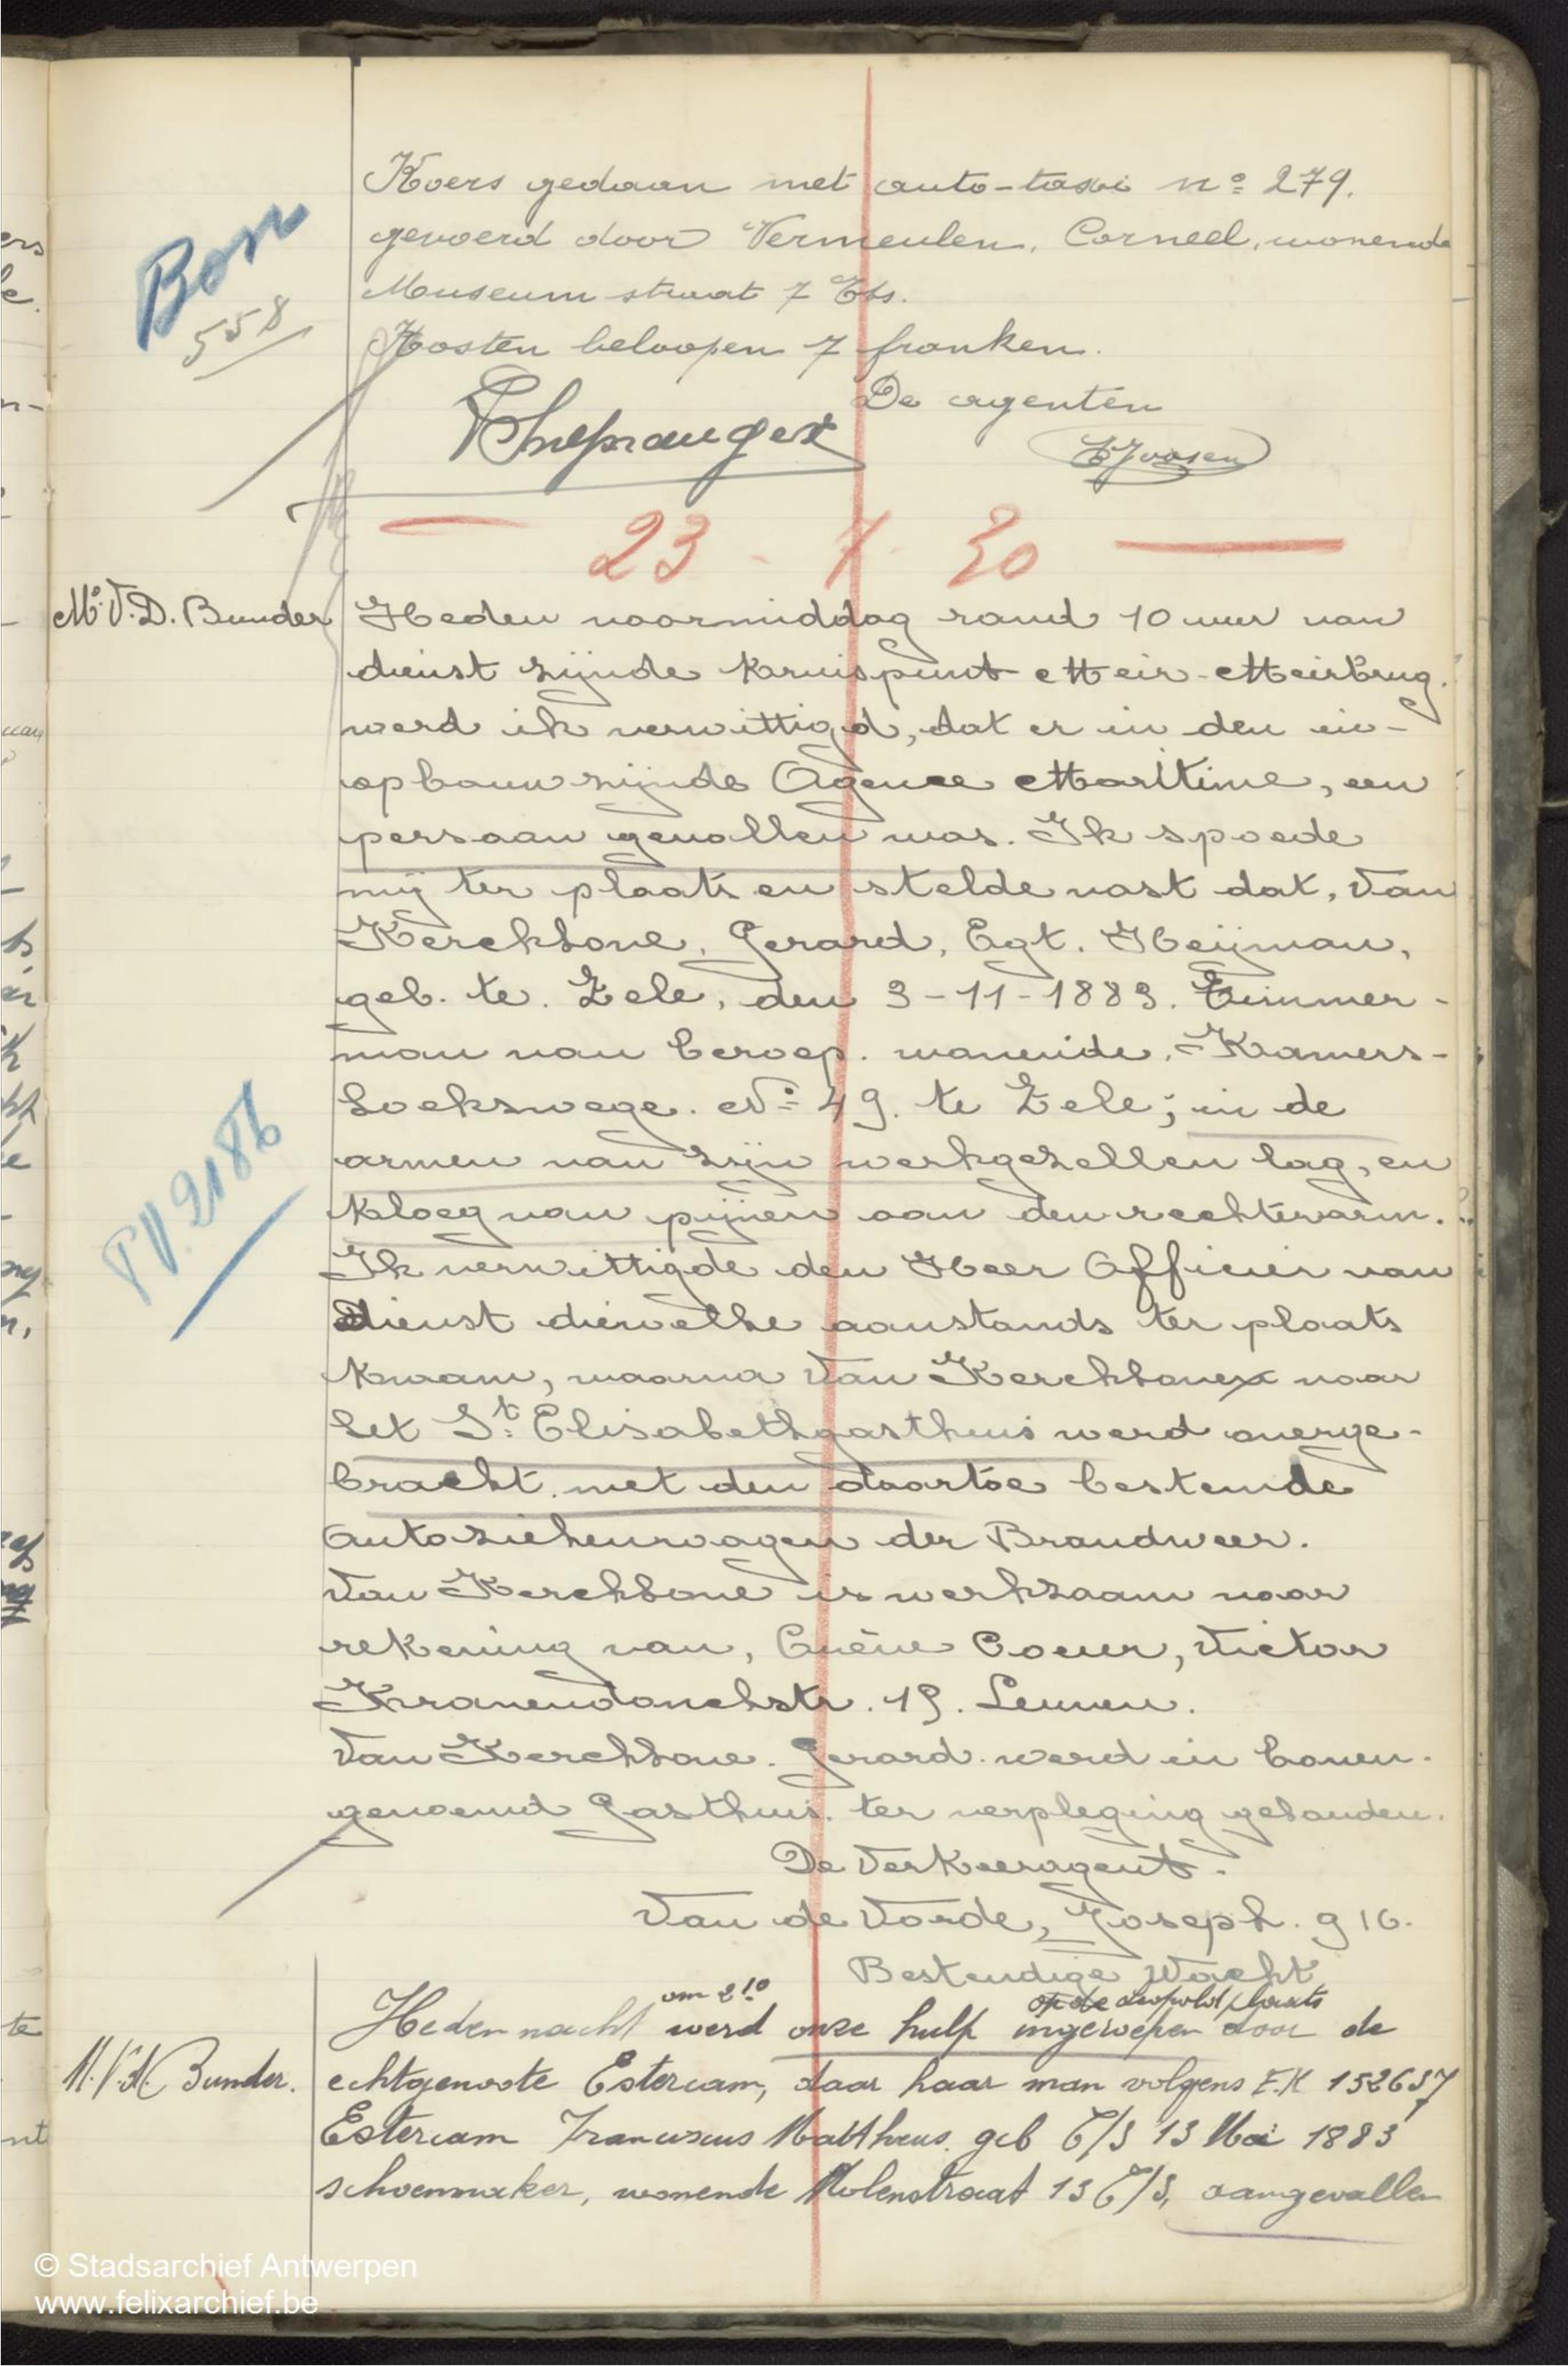 Koers gedaan met auto-taxi nº 279.
gevoerd door Vermeulen, Corneel, wonende
Museum straat 7 Ebs.
Bon
558
Kosten beloopen 7 franken.
De agenten
EJoosen
23 - 7 - 30
Mr V.D. Bunder
Heden voormiddag rond 10 uur van
dienst zijnde kruispunt Meir-Meirbrug.
werd ik verwittigd, dat er in den in-
opbouw zijnde Agence Maritime, een
persoon gevallen was. Ik spoede
mij ter plaats en stelde vast dat, Van
Kerckhove, Gerard, Egt. Heijman,
geb. te. Zele, den 9-11-1889. Timmer-
man van beroep. wonende, Kramers-
hoekswege. Nº 49. te Zele; in de
armen van zijn werkgezellen lag, en
kloeg van pijnen aan den rechterarm.
PV. 2186
Ik verwittigde den Heer Officier van
dienst dierwelke aanstonds ter plaats
kwam, waarna Van Kerckhove naar
het St. Elisabethgasthuis werd overge-
bracht. met den daartoe bestemde
autoziekenwagen der Brandweer.
Van Kerckhove is werkzaam voor
rekening van, Coeur, Victor
Kranendonckstr. 19. Leuven.
Van Kerckhove. Gerard. werd in boven-
genoemd Gasthuis. ter verpleging gehouden.
De Verkeeragent.
Van de Vorde, Joseph. 916.
Bestendige Wacht
om 2 10 op de Leopoldplaats
Heden nacht werd onze hulp ingeroepen door de
M.V.d Bunder.
echtgenoote Estercam, daar haar man volgens E.K 152637
Estercam Franciscus Mattheus. geb T/S 13 Mei 1883
schoenmaker, wonende Molenstraat 13 T/S, aangevallen
© Stadsarchief Antwerpen
www.felixarchief.be